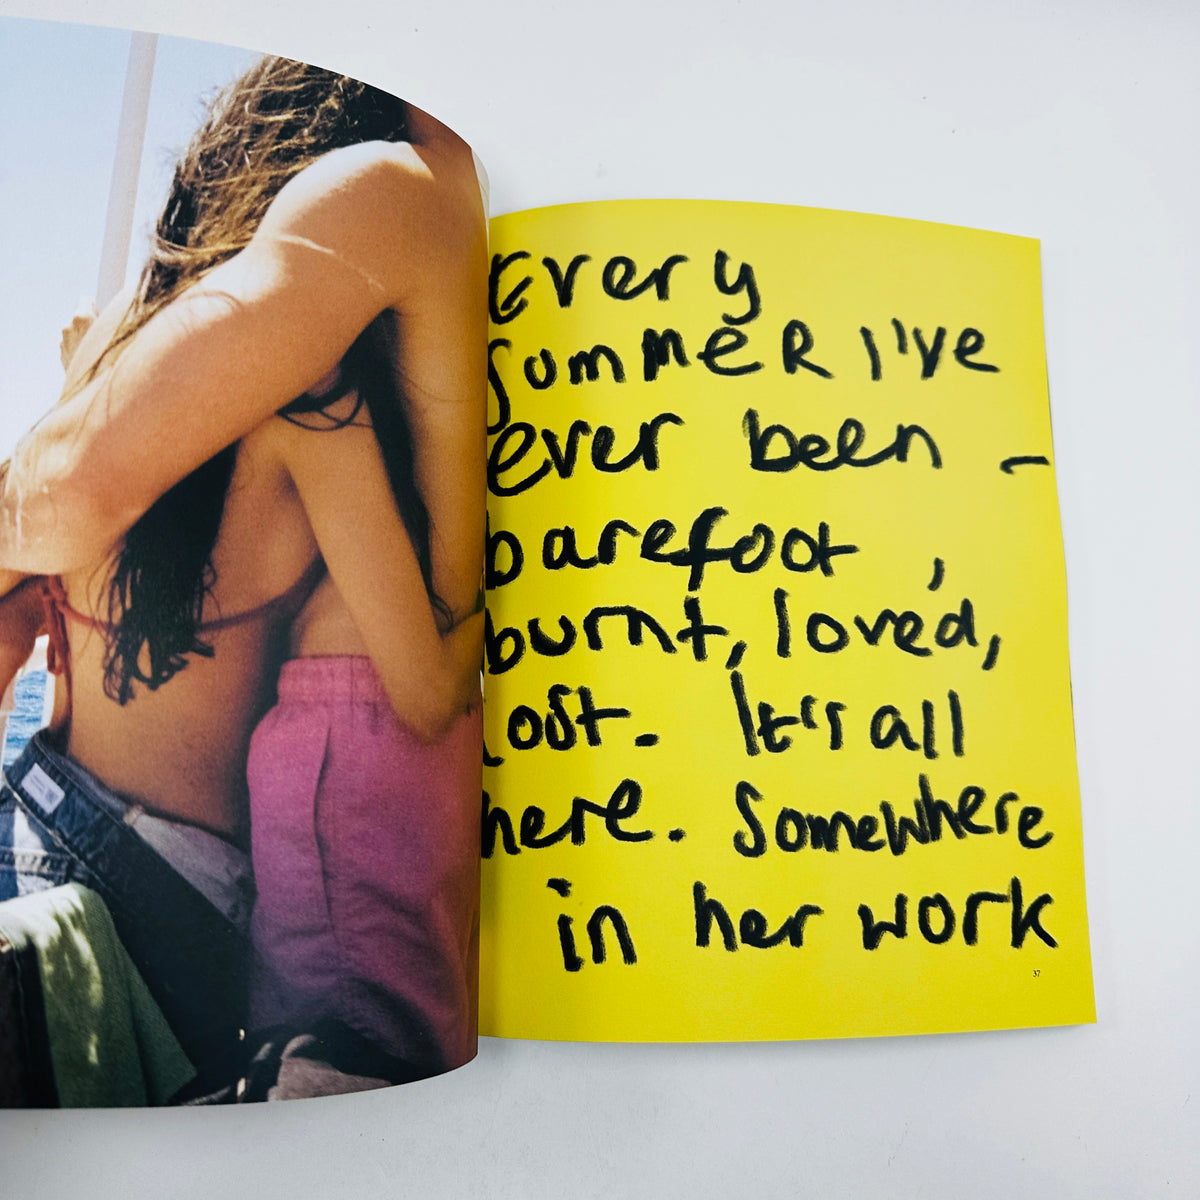 Every
Summer I've
ever been -
barefoot ,
burnt, loved,
lost. It's all
here. Somewhere
in her work
37